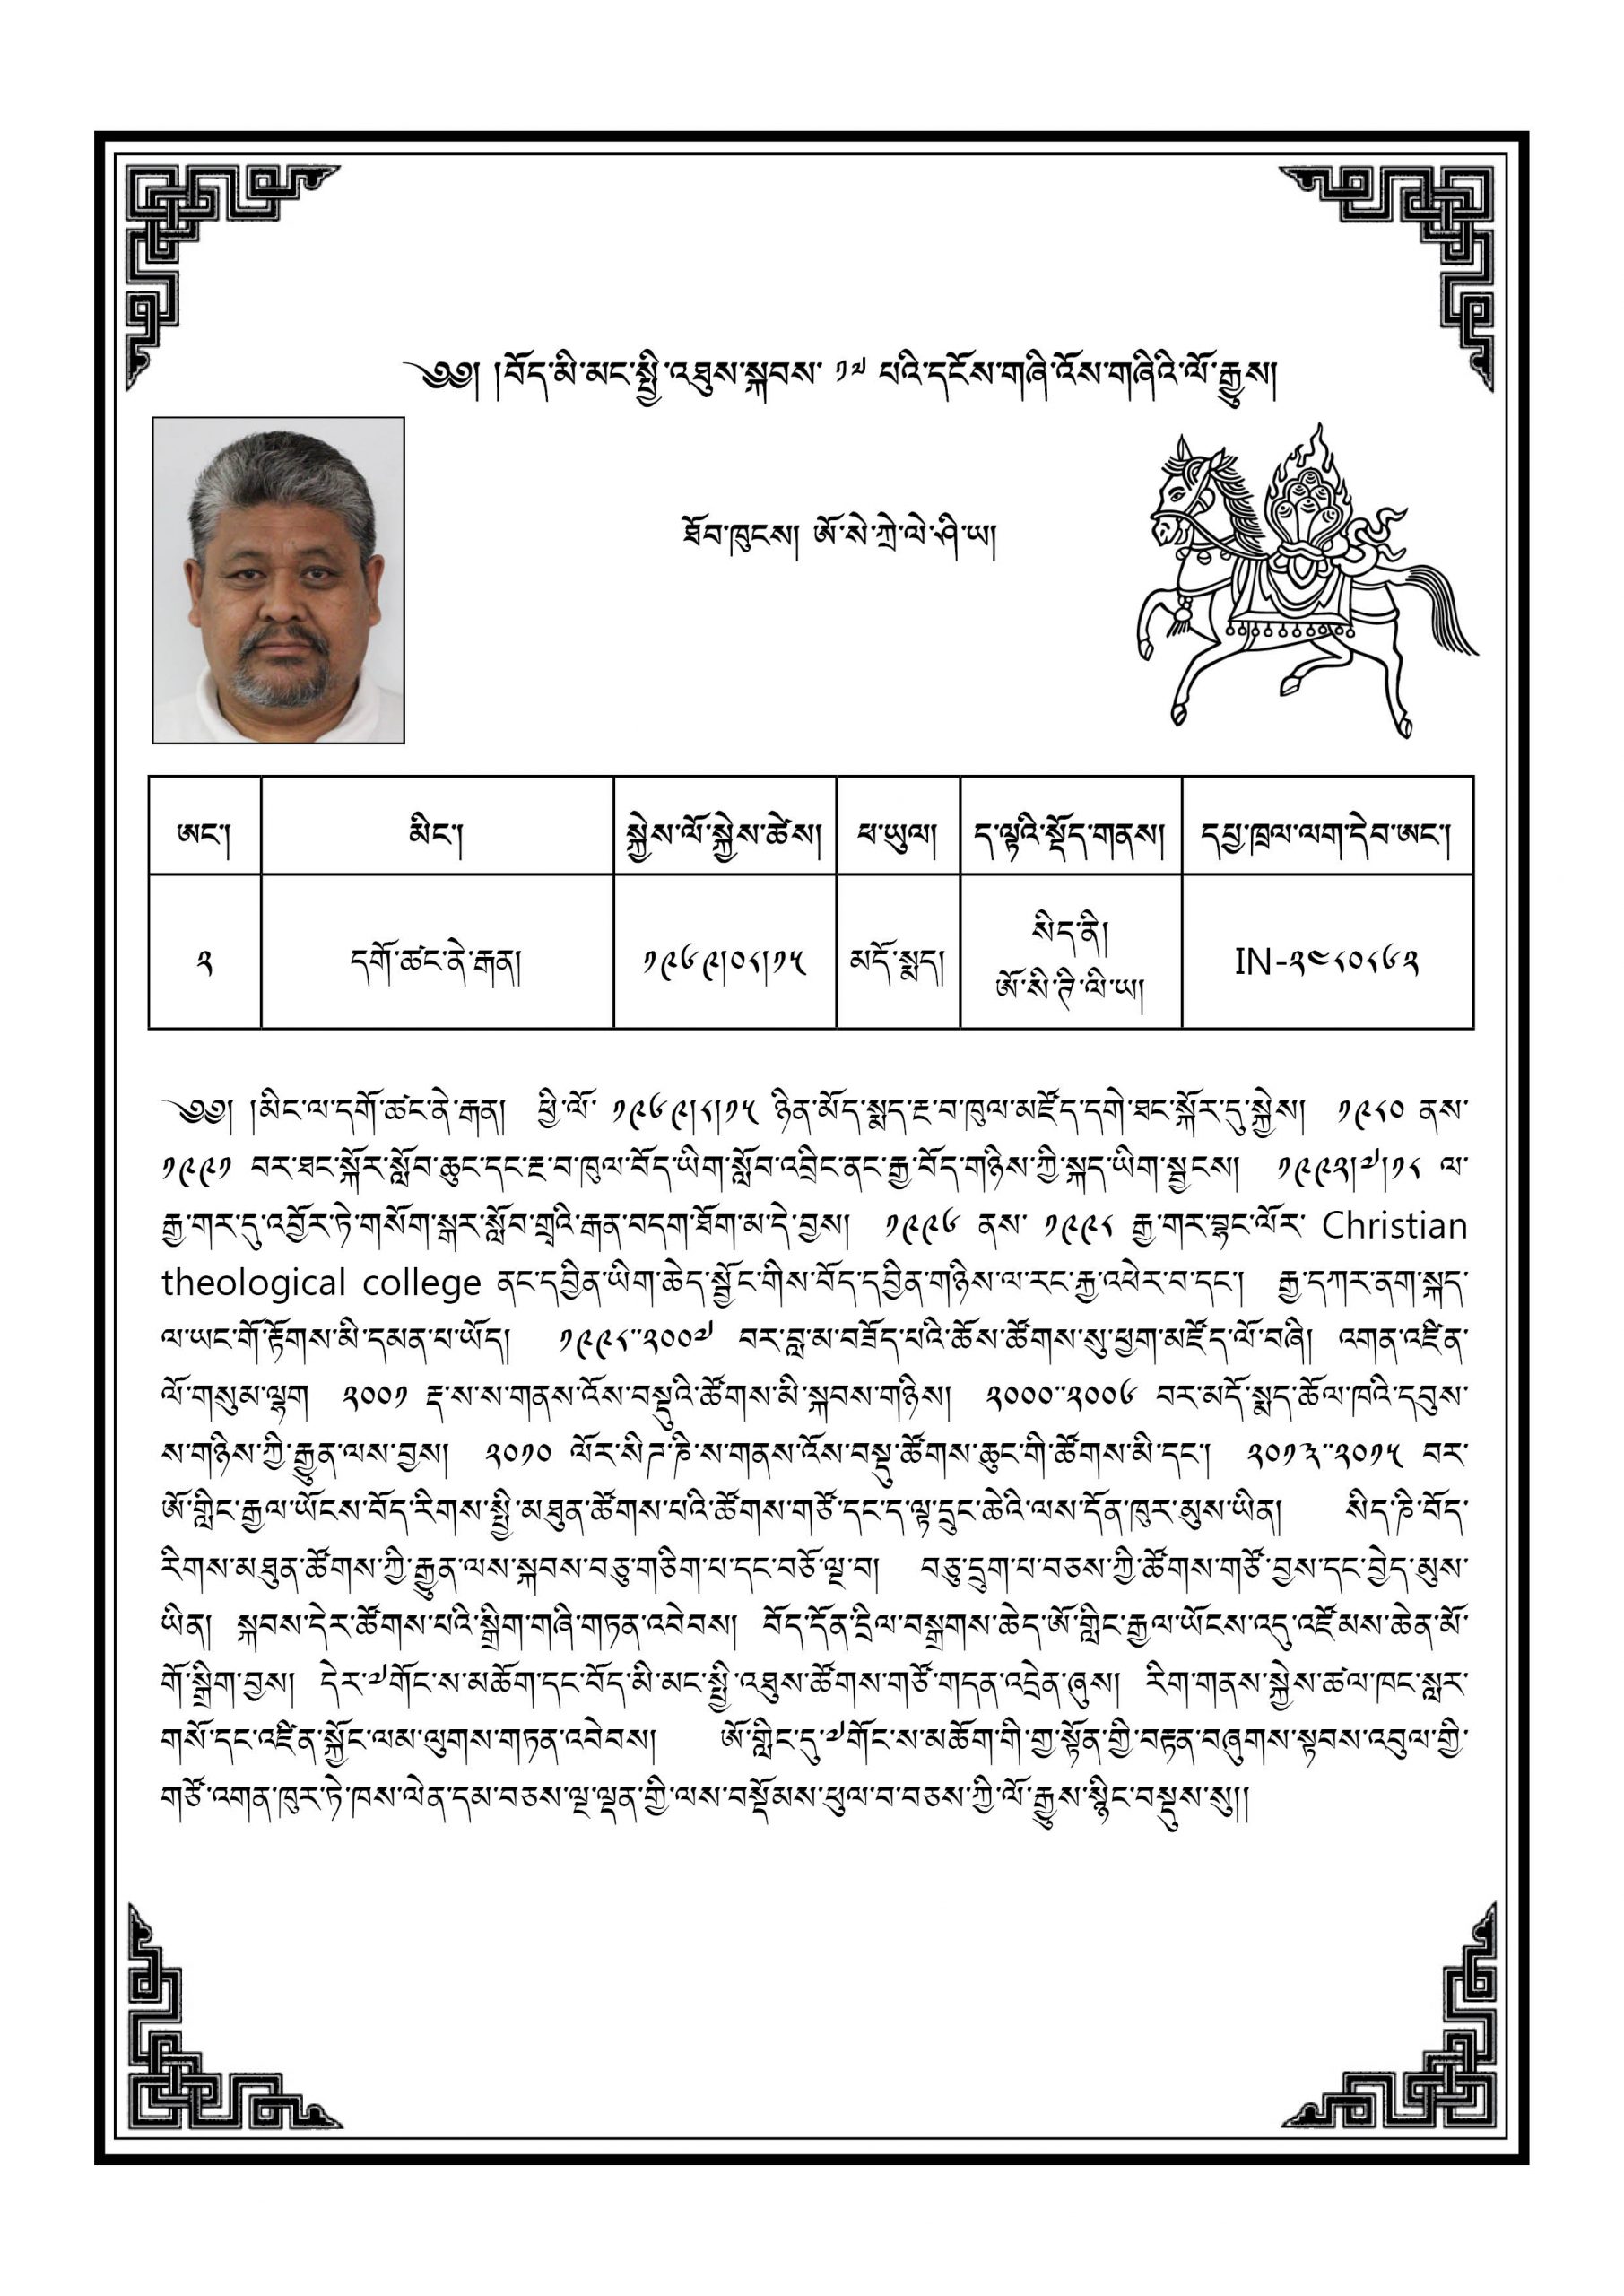 ༄༅། །བོད་མི་མང་སྤྱི་འཐུས་སྐབས་ ༡༧ པའི་དངོས་གཞི་འོས་གཞིའི་ལོ་རྒྱུས།
ཐོབ་ཁུངས། ཨོ་སེ་ཀྲེ་ལེ་ཤི་ཡ།
ཨང་། མིང་། སྐྱེས་ལོ་སྐྱེས་ཚེས། ཕ་ཡུལ། ད་ལྟའི་སྡོད་གནས། དཔྱ་ཁྲལ་ལག་དེབ་ཨང་།
༢ དགོ་ཚང་ནེ་རྒན། ༡༩༦༩།༠༨།༡༥ མདོ་སྨད། སིད་ནི། ཨོ་སི་ཊི་ལི་ཡ། IN-༢༤༨༠༨༦༢
༄༅། །མིང་ལ་དགོ་ཚང་ནེ་རྒན། ཕྱི་ལོ་ ༡༩༦༩།༨།༡༥ ཉིན་མོད་སྨད་རྔ་བ་ཁུལ་མཛོད་དགེ་ཐང་སྐོར་དུ་སྐྱེས། ༡༩༨༠ ནས་
༡༩༩༡ བར་ཐང་སྐོར་སློབ་ཆུང་དང་རྔ་བ་ཁུལ་བོད་ཡིག་སློབ་འབྲིང་ནང་རྒྱ་བོད་གཉིས་ཀྱི་སྐད་ཡིག་སྦྱངས། ༡༩༩༢།༧།༡༨ ལ་
རྒྱ་གར་དུ་འབྱོར་ཏེ་གསོག་སྒར་སློབ་གྲྭའི་རྒན་བདག་ཐོག་མ་དེ་བྱས། ༡༩༩༦ ནས་ ༡༩༩༨ རྒྱ་གར་བྷང་ལོར་ Christian
theological college ནང་དབྱིན་ཡིག་ཆེད་སྦྱོང་གིས་བོད་དབྱིན་གཉིས་ལ་རང་རྐྱ་འཕེར་བ་དང་། རྒྱ་དཀར་ནག་སྐད་
ལ་ཡང་གོ་རྟོགས་མི་དམན་པ་ཡོད། ༡༩༩༨་་༢༠༠༧ བར་བླ་མ་བཟོད་པའི་ཆོས་ཚོགས་སུ་ཕྱག་མཛོད་ལོ་བཞི། འགན་འཛིན་
ལོ་གསུམ་ལྷག ༢༠༠༡ རྡ་ས་ས་གནས་འོས་བསྡུའི་ཚོགས་མི་སྐབས་གཉིས། ༢༠༠༠་་༢༠༠༦ བར་མདོ་སྨད་ཆོལ་ཁའི་དབུས་
ས་གཉིས་ཀྱི་རྒྱུན་ལས་བྱས། ༢༠༡༠ ལོར་སི་ཌ་ཎི་ས་གནས་འོས་བསྡུ་ཚོགས་ཆུང་གི་ཚོགས་མི་དང་། ༢༠༡༣་་༢༠༡༥ བར་
ཨོ་གླིང་རྒྱལ་ཡོངས་བོད་རིགས་སྤྱི་མཐུན་ཚོགས་པའི་ཚོགས་གཙོ་དང་ད་ལྟ་དྲུང་ཆེའི་ལས་དོན་ཁུར་མུས་ཡིན། སིད་ཎི་བོད་
རིགས་མཐུན་ཚོགས་ཀྱི་རྒྱུན་ལས་སྐབས་བཅུ་གཅིག་པ་དང་བཅོ་ལྔ་བ། བཅུ་དྲུག་པ་བཅས་ཀྱི་ཚོགས་གཙོ་བྱས་དང་བྱེད་མུས་
ཡིན། སྐབས་དེར་ཚོགས་པའི་སྒྲིག་གཞི་གཏན་འབེབས། བོད་དོན་དྲིལ་བསྒྲགས་ཆེད་ཨོ་གླིང་རྒྱལ་ཡོངས་འདུ་འཛོམས་ཆེན་མོ་
གོ་སྒྲིག་བྱས། དེར་༧གོང་ས་མཆོག་དང་བོད་མི་མང་སྤྱི་འཐུས་ཚོགས་གཙོ་གདན་འདྲེན་ཞུས། རིག་གནས་སྐྱེས་ཚལ་ཁང་སླར་
གསོ་དང་འཛིན་སྐྱོང་ལམ་ལུགས་གཏན་འབེབས། ཨོ་གླིང་དུ་༧གོང་ས་མཆོག་གི་ཀྱ་སྟོན་གྱི་བརྟན་བཞུགས་སྟབས་འབུལ་གྱི་
གཙོ་འགན་ཁུར་ཏེ་ཁས་ལེན་དམ་བཅས་ལྔ་ལྡན་གྱི་ལས་བསྡོམས་ཕུལ་བ་བཅས་ཀྱི་ལོ་རྒྱུས་སྙིང་བསྡུས་སུ།།